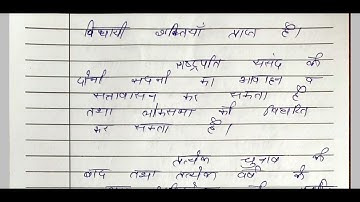 विधायी शक्तियाँ प्राप्त हैं।
राष्ट्रपति संसद के
दोनों सदनों का आवाहन व
सत्रावसान कर सकता है
तथा लोकसभा को विघटित
कर सकता है।
प्रत्येक चुनाव के
बाद तथा प्रत्येक वर्ष के